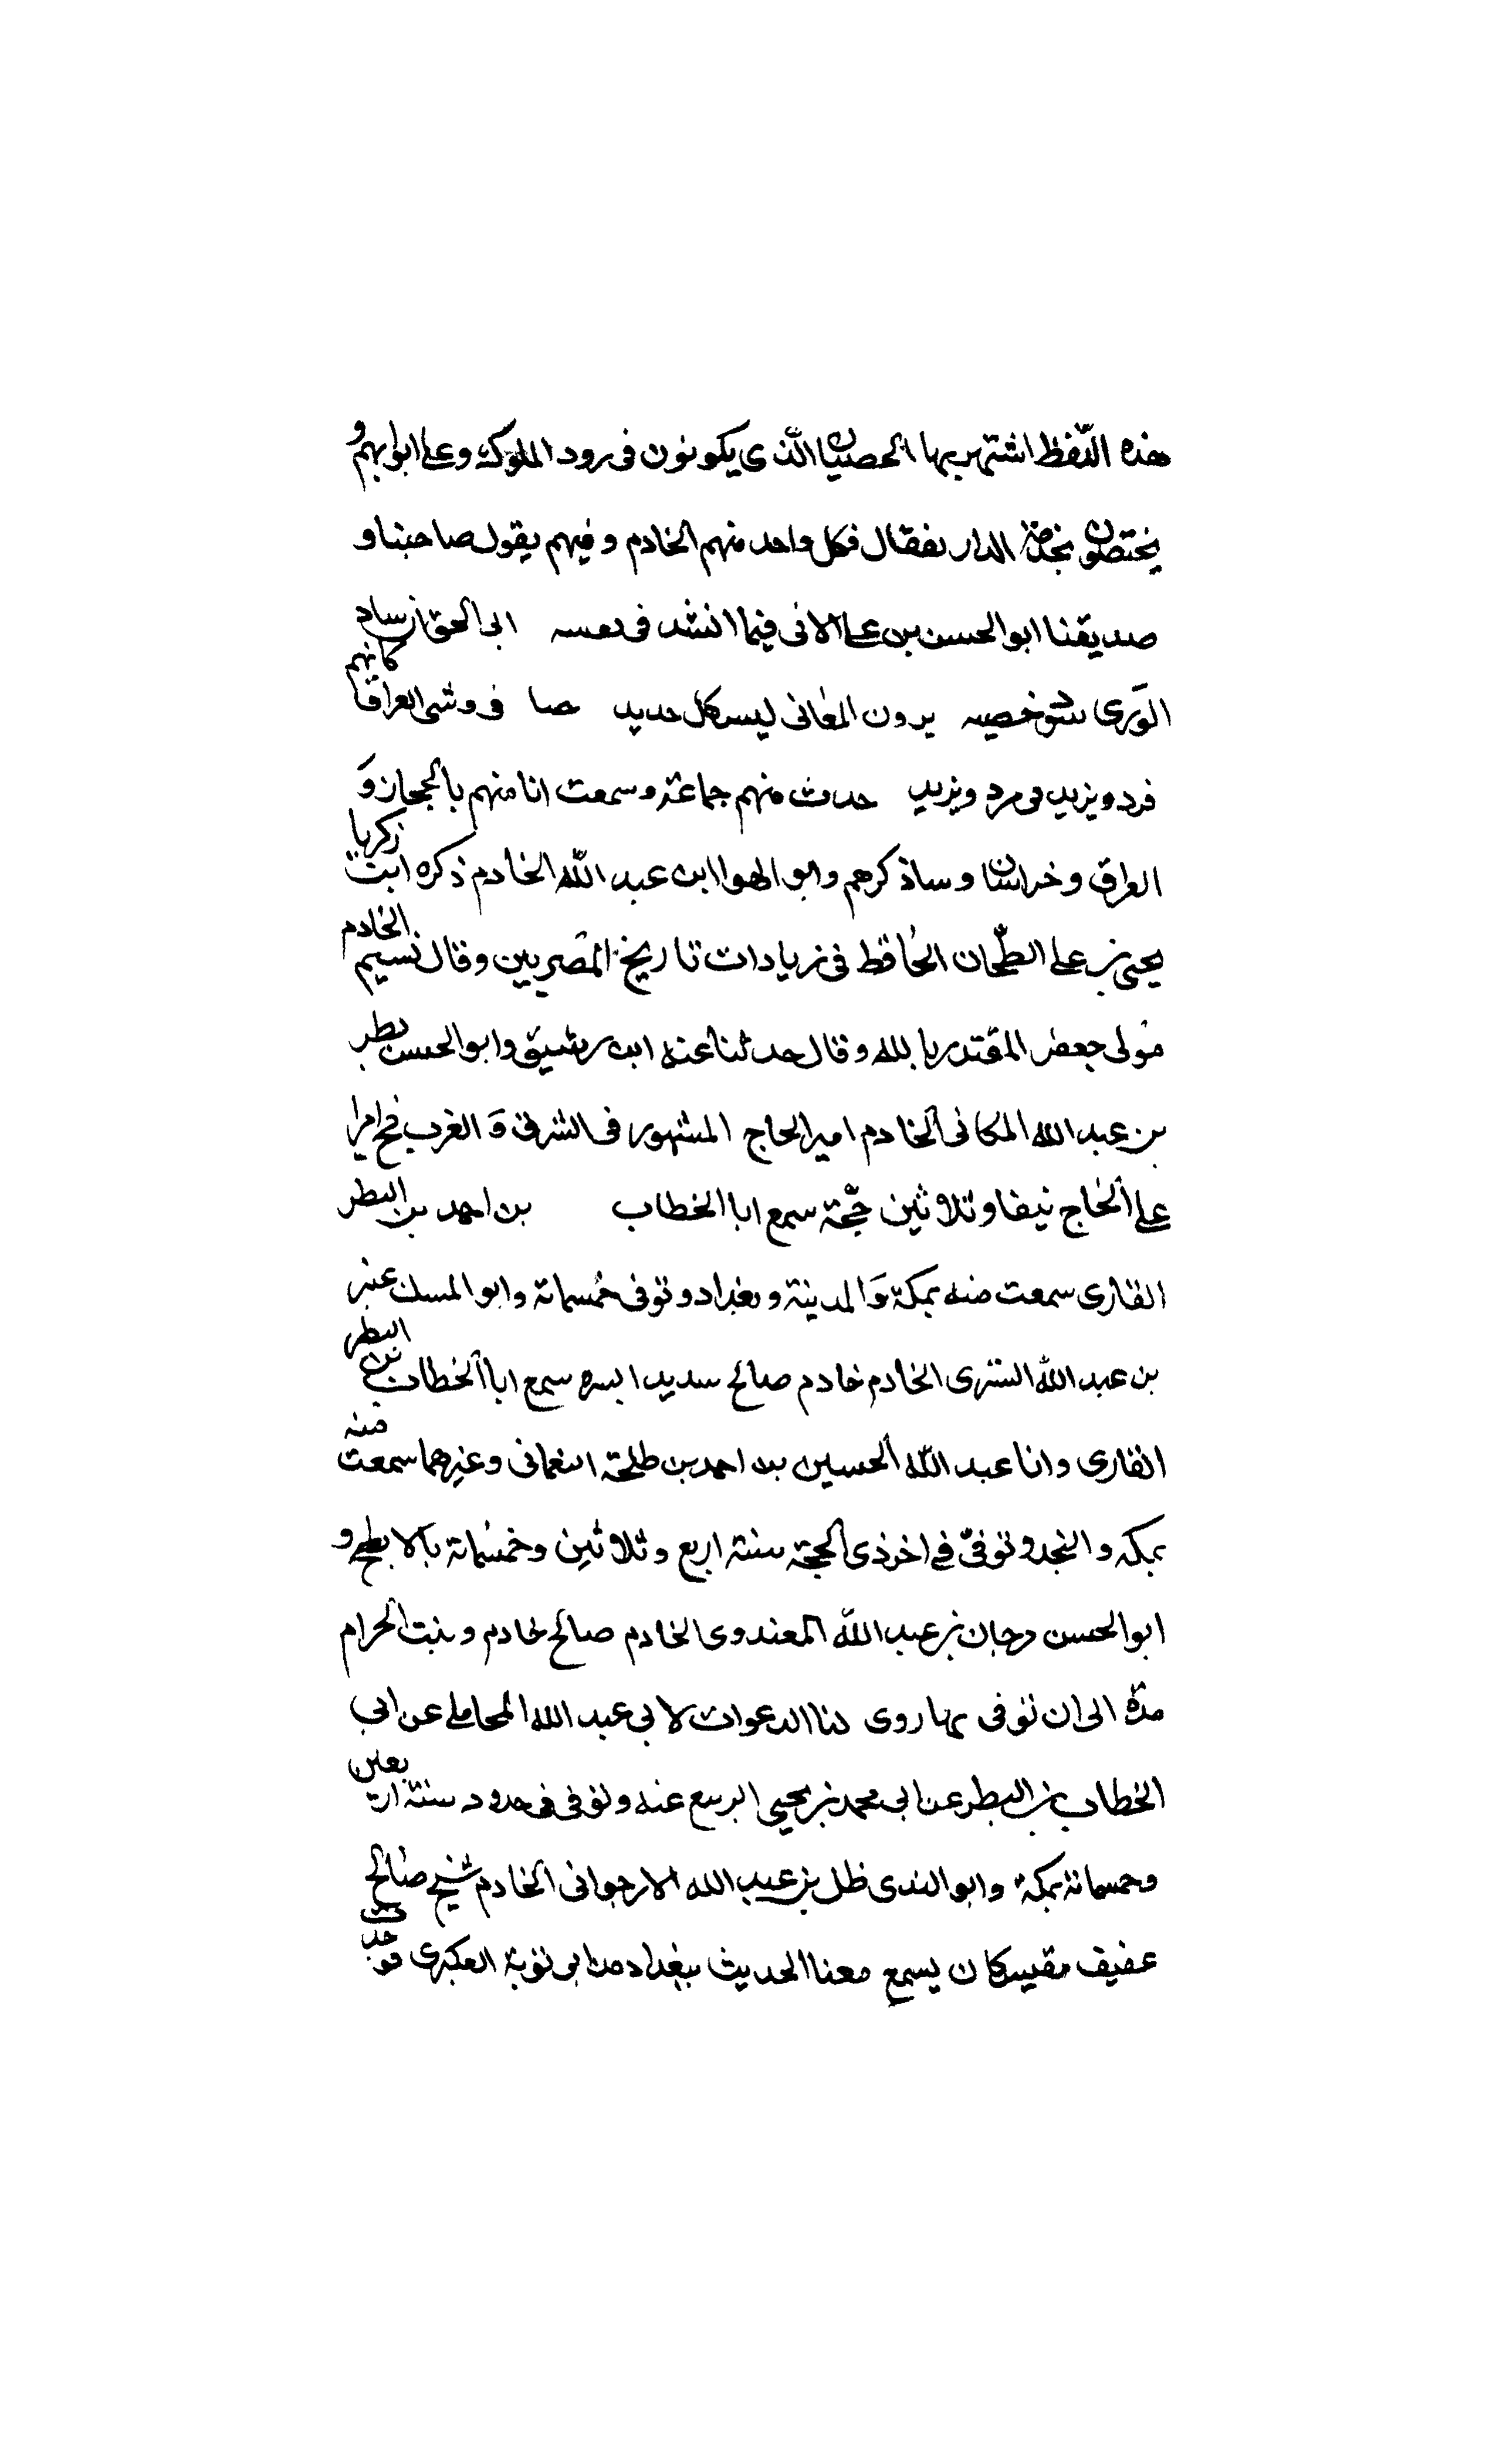 هذه اللفظ اشتهر بها الخصيان الذى يكونون فى دور الملوك وعلى ابوابهم و
يختصون بخدمة الدار يفقال فكل واحد منهم الخادم وفيهم يقول صاحبنا و
صديقنا ابو الحسن بن على فيما انشد فى نفسه ابى الحق ان ساد
الورى كانهم يرون المغانى ليس كل حديد فى وشى العراق
فرد ويزيد فى مرد ويزيد حدث منهم جماعة وسمعت انا منهم بالحجاز و
العراق وخراسان وساذكرهم وابو الهوا ابن عبد الله الخادم ذكره ابن زكريا
يحيى بن على الطحان الحافظ فى زيادات تاريخ المصريين وقال نسيم الخادم
مولى جعفر المقتدر بالله وقال حدثنا عنه ابن رشيق وابو الحسن نطر
بن عبد الله الخادم امير الحاج المشهور فى الشرق والغرب حج اميرا
على الحاج نيفا وثلاثين حجة سمع ابا الخطاب بن احمد بن البطر
القارى سمعت منه بمكة والمدينة وبغداد وتوفى خمسمائة وابو المسك عنبر
بن عبد الله السترى الخادم خادم صالح سديد السيرة سمع ابا الخطاب بن البطر
القارى وابا عبد الله الحسين بن احمد بن طلحة النعالى وغيرهما سمعت منه
بمكه و وتوفى فى اخر ذى الحجة سنة اربع وثلاثين وخمسمائة بالابطح و
ابو الحسن مرجان بن عبد الله الخادم صالح خادم وبيت الحرام
مدة الى ان توفى بها روى لنا الدعوات لابى عبد الله المحاملى عن ابى
الخطاب بن البطر عن ابى محمد بن يحيى البيع عنه وتوفى فى حدود سنة اربعين
وخمسمائة بمكة وابو الندى ظل بن عبد الله الارجوانى الخادم شيخ صالح
عفيف كان يسمع معنا الحديث ببغداد من ابى توبة العكبرى